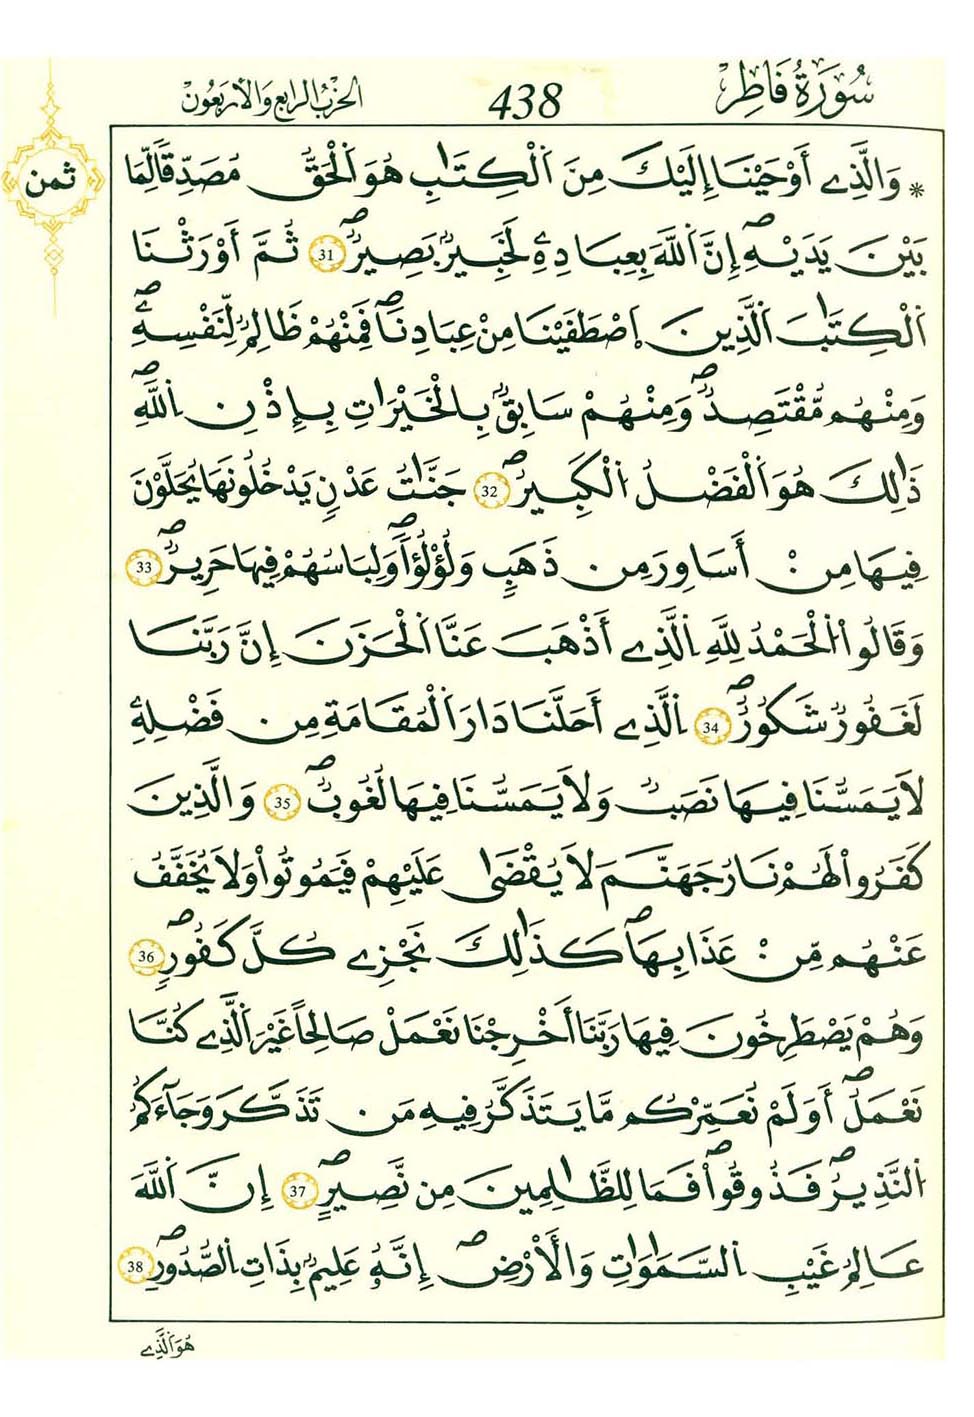 سُورَةُ فَاطِرٍ
438
الحِزْبُ الرَّابِعُ وَالأَرْبَعُونَ
ثمن
* وَالَّذِے أَوْحَيْنَا إِلَيْكَ مِنَ اَ۬لْكِتَٰبِ هُوَ اَ۬لْحَقُّ مُصَدِّقاٗ لِّمَا
بَيْنَ يَدَيْهِۖ إِنَّ اَ۬للَّهَ بِعِبَادِهِۦ لَخَبِيرُۢ بَصِيرٞۖ 31 ثُمَّ أَوْرَثْنَا
اَ۬لْكِتَٰبَ اَ۬لَّذِينَ اَ۪صْطَفَيْنَا مِنْ عِبَادِنَاۖ فَمِنْهُمْ ظَالِمٞ لِّنَفْسِهِۦۖ
وَمِنْهُم مُّقْتَصِدٞۖ وَمِنْهُمْ سَابِقُۢ بِالْخَيْرَٰتِ بِإِذْنِ اِ۬للَّهِۖ
ذَٰلِكَ هُوَ اَ۬لْفَضْلُ اُ۬لْكَبِيرُۖ 32 جَنَّٰتُ عَدْنٖ يَدْخُلُونَهَا يُحَلَّوْنَ
فِيهَا مِنْ أَسَاوِرَ مِن ذَهَبٖ وَلُؤْلُؤاٗۖ وَلِبَاسُهُمْ فِيهَا حَرِيرٞۖ 33
وَقَالُواْ اُ۬لْحَمْدُ لِلهِ اِ۬لَّذِے أَذْهَبَ عَنَّا اَ۬لْحَزَنَ إِنَّ رَبَّنَا
لَغَفُورٞ شَكُورٌۖ 34 اِ۬لَّذِے أَحَلَّنَا دَارَ اَ۬لْمُقَامَةِ مِن فَضْلِهِۦ
لَا يَمَسُّنَا فِيهَا نَصَبٞ وَلَا يَمَسُّنَا فِيهَا لُغُوبٞۖ 35 وَالَّذِينَ
كَفَرُواْ لَهُمْ نَارُ جَهَنَّمَ لَا يُقْضَىٰ عَلَيْهِمْ فَيَمُوتُواْ وَلَا يُخَفَّفُ
عَنْهُم مِّنْ عَذَابِهَاۖ كَذَٰلِكَ نَجْزِے كُلَّ كَفُورٖۖ 36
وَهُمْ يَصْطَرِخُونَ فِيهَا رَبَّنَا أَخْرِجْنَا نَعْمَلْ صَالِحاً غَيْرَ اَ۬لَّذِے كُنَّا
نَعْمَلُۖ أَوَلَمْ نُعَمِّرْكُم مَّا يَتَذَكَّرُ فِيهِ مَن تَذَكَّرَ وَجَآءَكُمُ
اُ۬لنَّذِيرُۖ فَذُوقُواْۖ فَمَا لِلظَّٰلِمِينَ مِن نَّصِيرٍۖ 37 إِنَّ اَ۬للَّهَ
عَالِمُ غَيْبِ اِ۬لسَّمَٰوَٰتِ وَالْأَرْضِۖ إِنَّهُۥ عَلِيمُۢ بِذَاتِ اِ۬لصُّدُورِۖ 38
هُوَ اَ۬لَّذِے